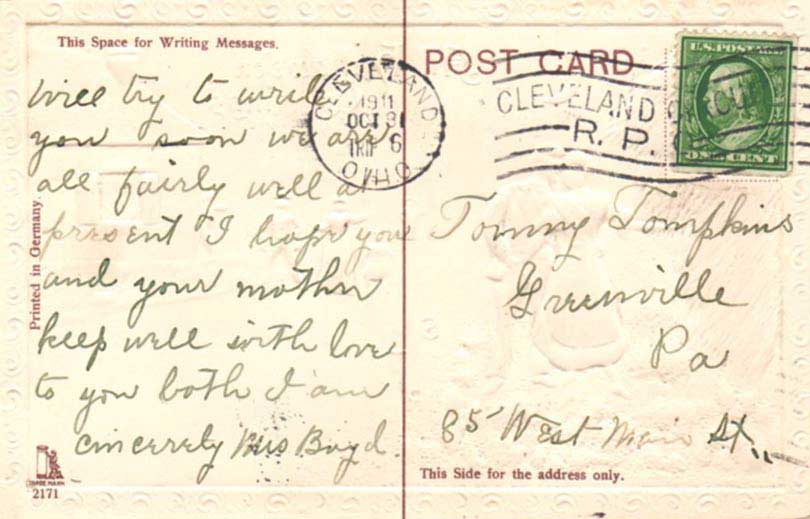 This Space for Writing Messages.
Will try to write
you soon we are
all fairly well at
present I hope you
and your mother
keep well with love
to you both I am
sincerely Mrs Boyd.
Printed in Germany
TRADE MARK
2171
POST CARD
CLEVELAND
1911
OCT 31
TRIP 6
OHIO
CLEVELAND
R. P.
U.S. POSTAGE
ONE CENT
Tommy Tompkins
Greenville
Pa
85 West Main St.,
This Side for the address only.